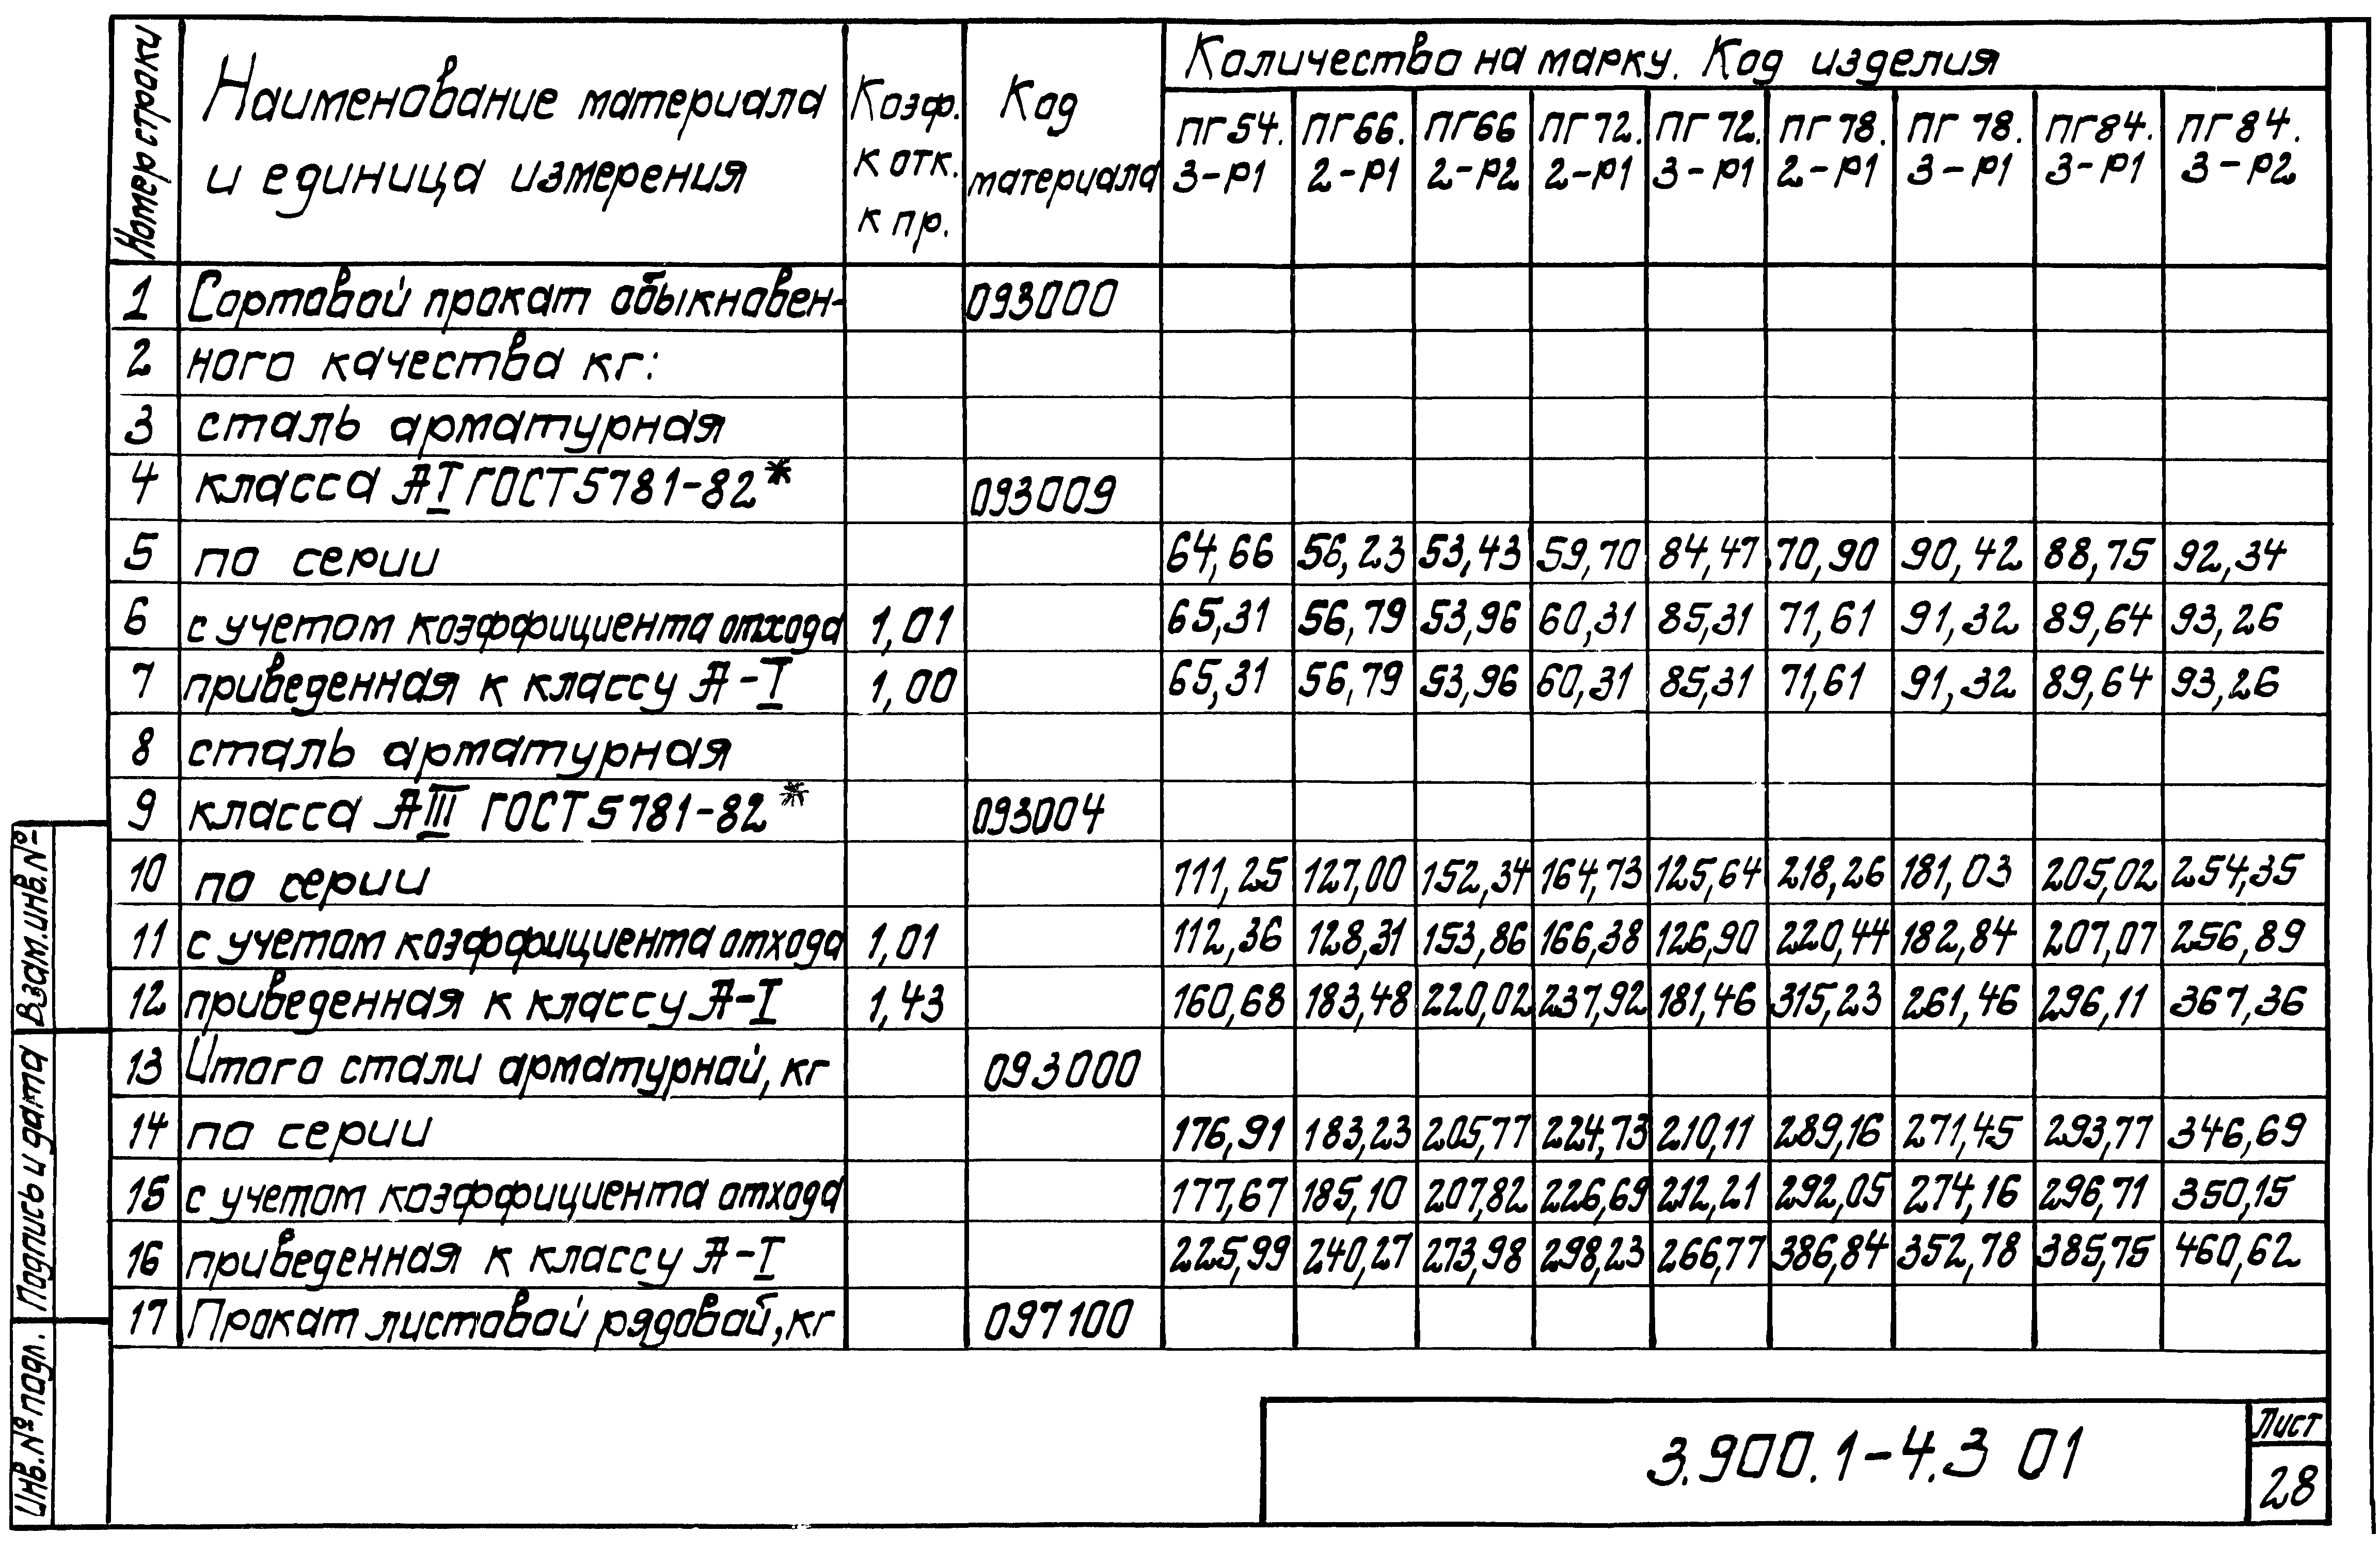 Номер строки | Наименование материала и единица измерения | Коэф. к отк. к пр. | Код материала | Количество на марку. Код изделия
ПГ54. 3-Р1 | ПГ66. 2-Р1 | ПГ66 2-Р2 | ПГ72. 2-Р1 | ПГ72. 3-Р1 | ПГ78. 2-Р1 | ПГ78. 3-Р1 | ПГ84. 3-Р1 | ПГ84. 3-Р2
1 | Сортовой прокат обыкновен- | 093000
2 | ного качества кг:
3 | сталь арматурная
4 | класса АI ГОСТ 5781-82* | 093009
5 | по серии | 64,66 | 56,23 | 53,43 | 59,70 | 84,47 | 70,90 | 90,42 | 88,75 | 92,34
6 | с учетом коэффициента отхода | 1,01 | 65,31 | 56,79 | 53,96 | 60,31 | 85,31 | 71,61 | 91,32 | 89,64 | 93,26
7 | приведенная к классу А-I | 1,00 | 65,31 | 56,79 | 53,96 | 60,31 | 85,31 | 71,61 | 91,32 | 89,64 | 93,26
8 | сталь арматурная
9 | класса АIII ГОСТ 5781-82* | 093004
10 | по серии | 111,25 | 127,00 | 152,34 | 164,73 | 125,64 | 218,26 | 181,03 | 205,02 | 254,35
11 | с учетом коэффициента отхода | 1,01 | 112,36 | 128,31 | 153,86 | 166,38 | 126,90 | 220,44 | 182,84 | 207,07 | 256,89
12 | приведенная к классу А-I | 1,43 | 160,68 | 183,48 | 220,02 | 237,92 | 181,46 | 315,23 | 261,46 | 296,11 | 367,36
13 | Итого стали арматурной, кг | 093000
14 | по серии | 176,91 | 183,23 | 205,77 | 224,73 | 210,11 | 289,16 | 271,45 | 293,77 | 346,69
15 | с учетом коэффициента отхода | 177,67 | 185,10 | 207,82 | 226,69 | 212,21 | 292,05 | 274,16 | 296,71 | 350,15
16 | приведенная к классу А-I | 225,99 | 240,27 | 273,98 | 298,23 | 266,77 | 386,84 | 352,78 | 385,75 | 460,62
17 | Прокат листовой рядовой, кг | 097100
Взам.инв.№
Подпись и дата
Инв.№ подл.
3.900.1-4.3 01
Лист
28